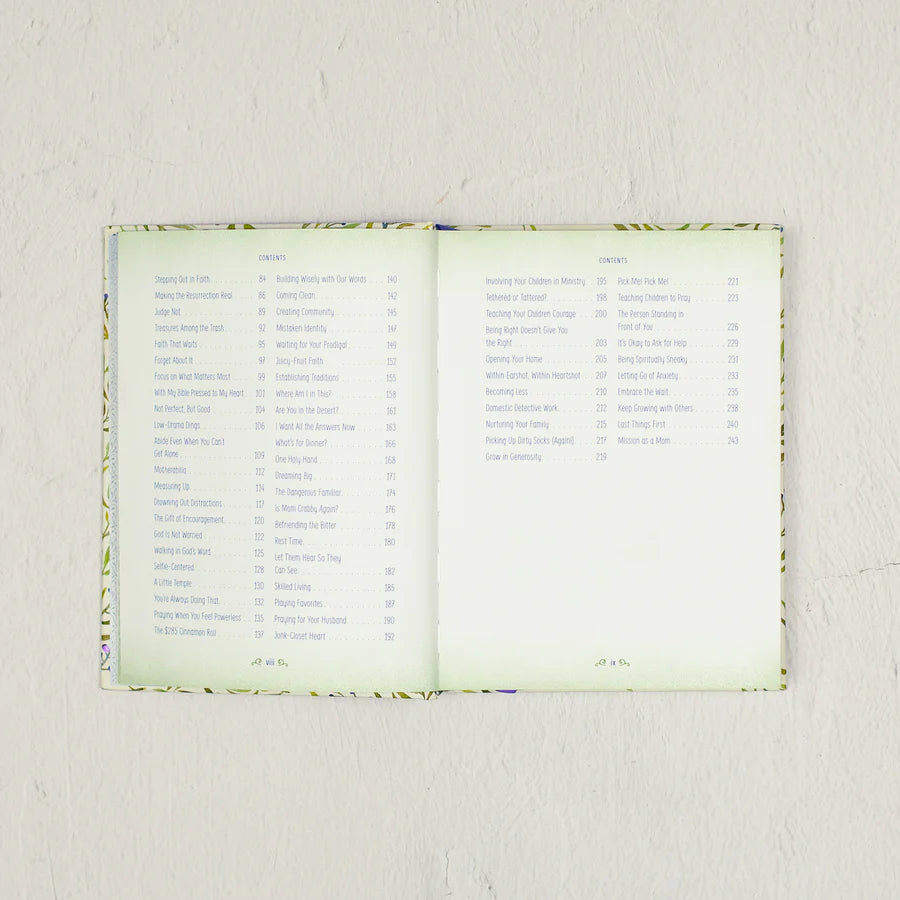 CONTENTS
Stepping Out in Faith 84
Making the Resurrection Real 86
Judge Not 89
Treasures Among the Trash 92
Faith That Waits 95
Forget About It 97
Focus on What Matters Most 99
With My Bible Pressed to My Heart 101
Not Perfect, But Good 104
Low-Drama Dings 106
Abide Even When You Can't
Get Alone 109
Motherabilia 112
Measuring Up 114
Drowning Out Distractions 117
The Gift of Encouragement 120
God Is Not Worried 122
Walking in God's Word 125
Selfie-Centered 128
A Little Temple 130
You're Always Doing That 132
Praying When You Feel Powerless 135
The $285 Cinnamon Roll 137
Building Wisely with Our Words 140
Coming Clean 142
Creating Community 145
Mistaken Identity 147
Waiting for Your Prodigal 149
Juicy-Fruit Faith 152
Establishing Traditions 155
Where Am I in This? 158
Are You in the Desert? 161
I Want All the Answers Now 163
What's for Dinner? 166
One Holy Hand 168
Dreaming Big 171
The Dangerous Familiar 174
Is Mom Crabby Again? 176
Befriending the Bitter 178
Rest Time 180
Let Them Hear So They
Can See 182
Skilled Living 185
Playing Favorites 187
Praying for Your Husband 190
Junk-Closet Heart 192
viii
CONTENTS
Involving Your Children in Ministry 195
Tethered or Tattered? 198
Teaching Your Children Courage 200
Being Right Doesn't Give You
the Right 203
Opening Your Home 205
Within Earshot, Within Heartshot 207
Becoming Less 210
Domestic Detective Work 212
Nurturing Your Family 215
Picking Up Dirty Socks (Again!) 217
Grow in Generosity 219
Pick Me! Pick Me! 221
Teaching Children to Pray 223
The Person Standing in
Front of You 226
It's Okay to Ask for Help 229
Being Spiritually Sneaky 231
Letting Go of Anxiety 233
Embrace the Wait 235
Keep Growing with Others 238
Last Things First 240
Mission as a Mom 243
ix